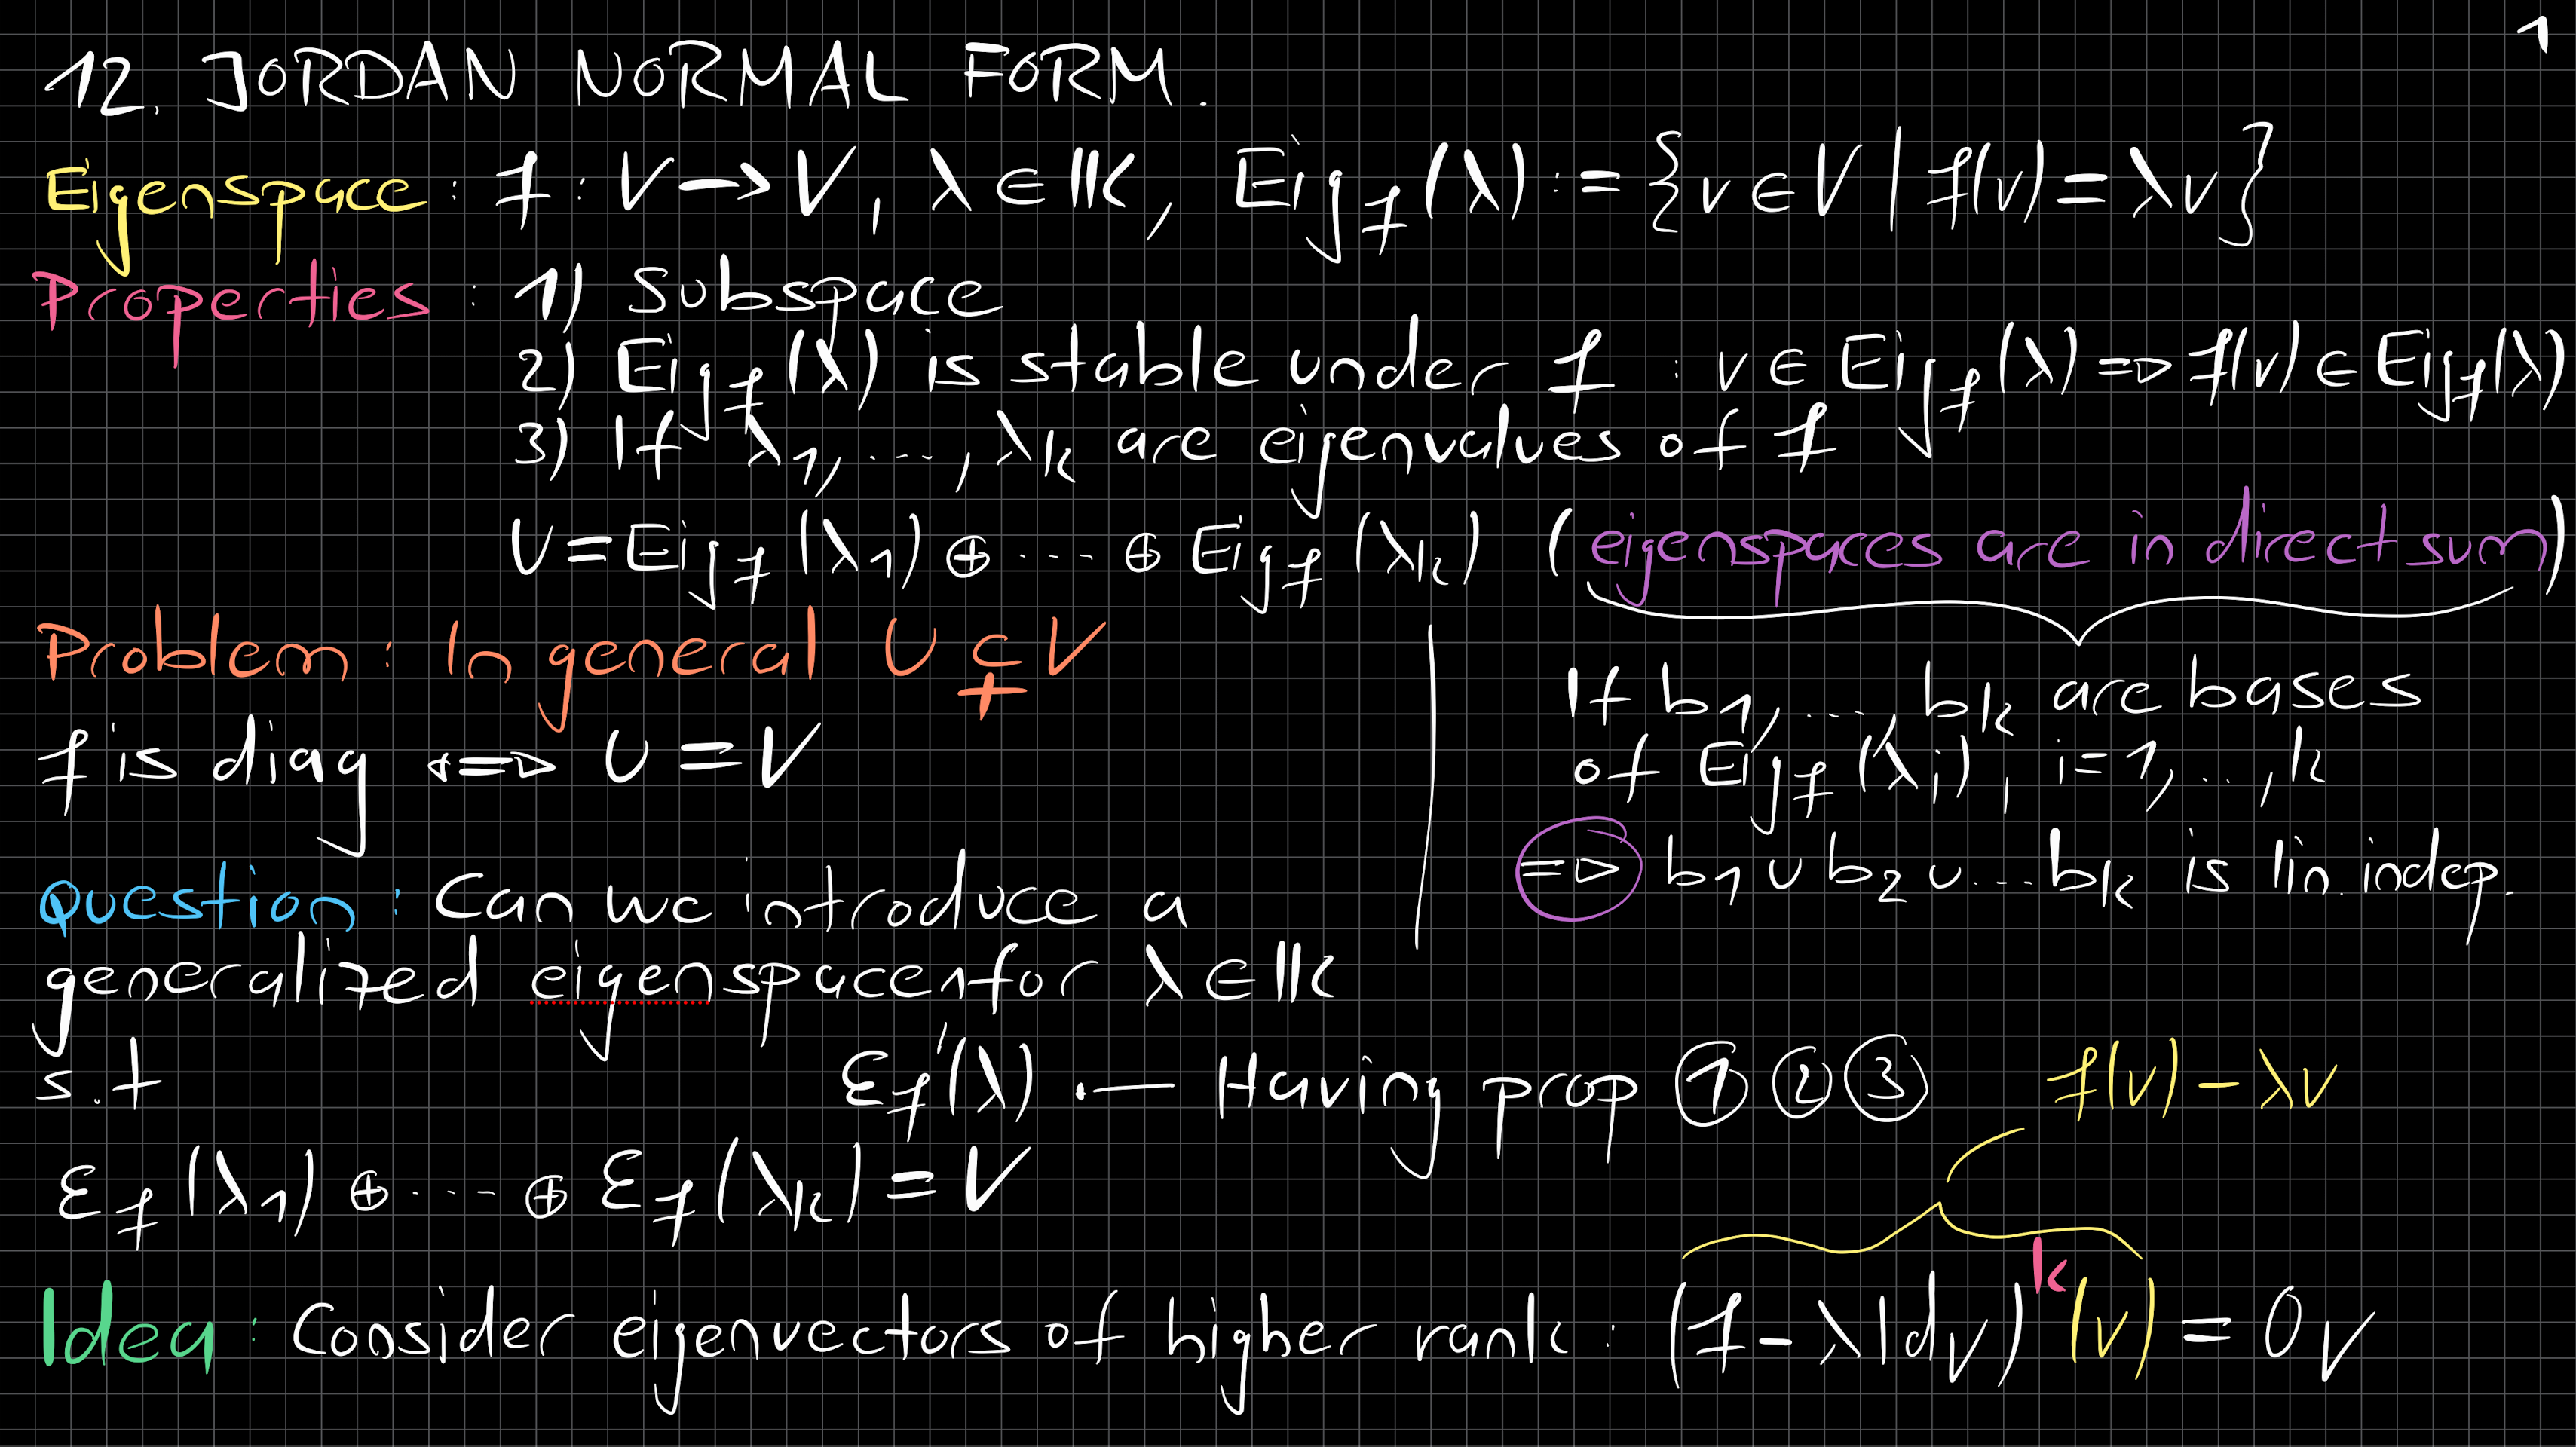 1
12. JORDAN NORMAL FORM.
Eigenspace : f : V → V, λ ∈ 𝕂, Eig_f (λ) := {v ∈ V | f(v) = λv}
Properties : 1) Subspace
2) Eig_f (λ) is stable under f : v ∈ Eig_f (λ) ⇒ f(v) ∈ Eig_f (λ)
3) If λ_1, ..., λ_k are eigenvalues of f
U = Eig_f (λ_1) ⊕ ... ⊕ Eig_f (λ_k) (eigenspaces are in direct sum)
Problem : In general U ⊊ V
f is diag ⇔ U = V
If b_1, ..., b_k are bases
of Eig_f (λ_i), i = 1, .., k
⇒ b_1 ∪ b_2 ∪ ... b_k is lin. indep.
Question : Can we introduce a
generalized eigenspace for λ ∈ 𝕂
s.t ℰ_f (λ) — Having prop ① ② ③
f(v) - λv
ℰ_f (λ_1) ⊕ ... ⊕ ℰ_f (λ_k) = V
Idea : Consider eigenvectors of higher rank : (f - λ Id_V)^k (v) = 0_V